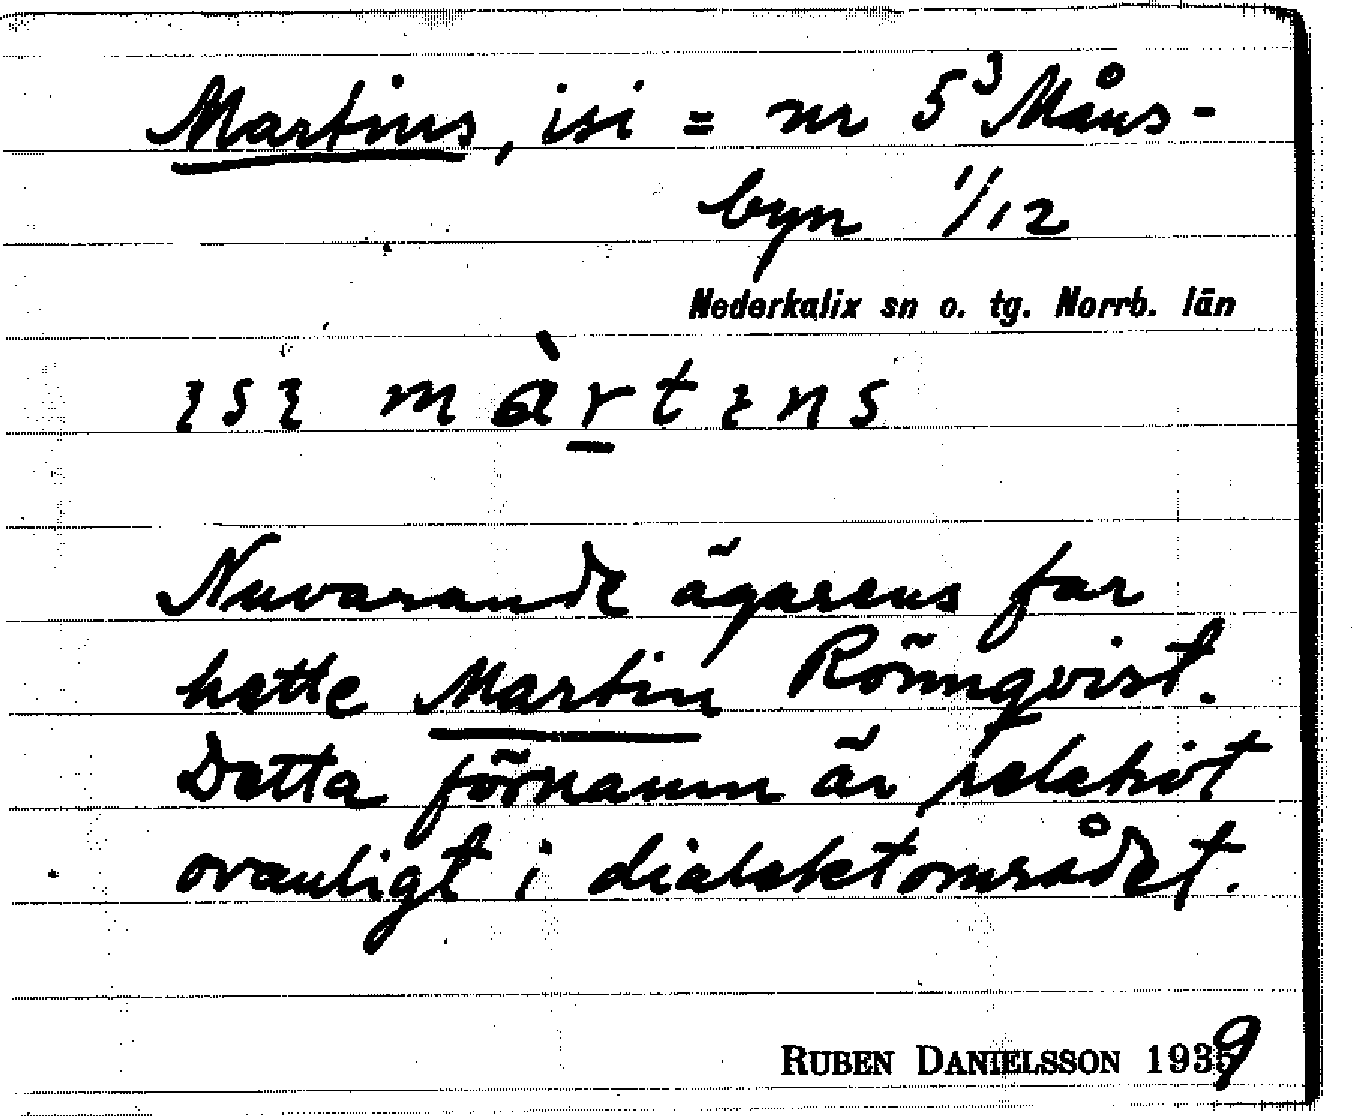 Martins, isi = nr 5³ Måns-
byn 1/12
Nederkalix sn o. tg. Norrb. län
ɩsɩ màrtɩns
Nuvarande ägarens far
hette Martin Rönnqvist.
Detta förnamn är relativt
ovanligt i dialektområdet.
RUBEN DANIELSSON 1939